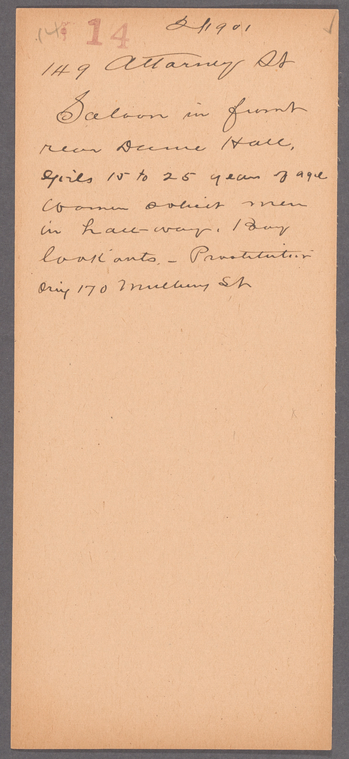 149 14 1901
149 Attorney St
Saloon in front
rear Dance Hall,
Girls 15 to 25 years of age
women solicit men
in hall-way. Boy
lookouts. – Prostitution
170 Mulberry St